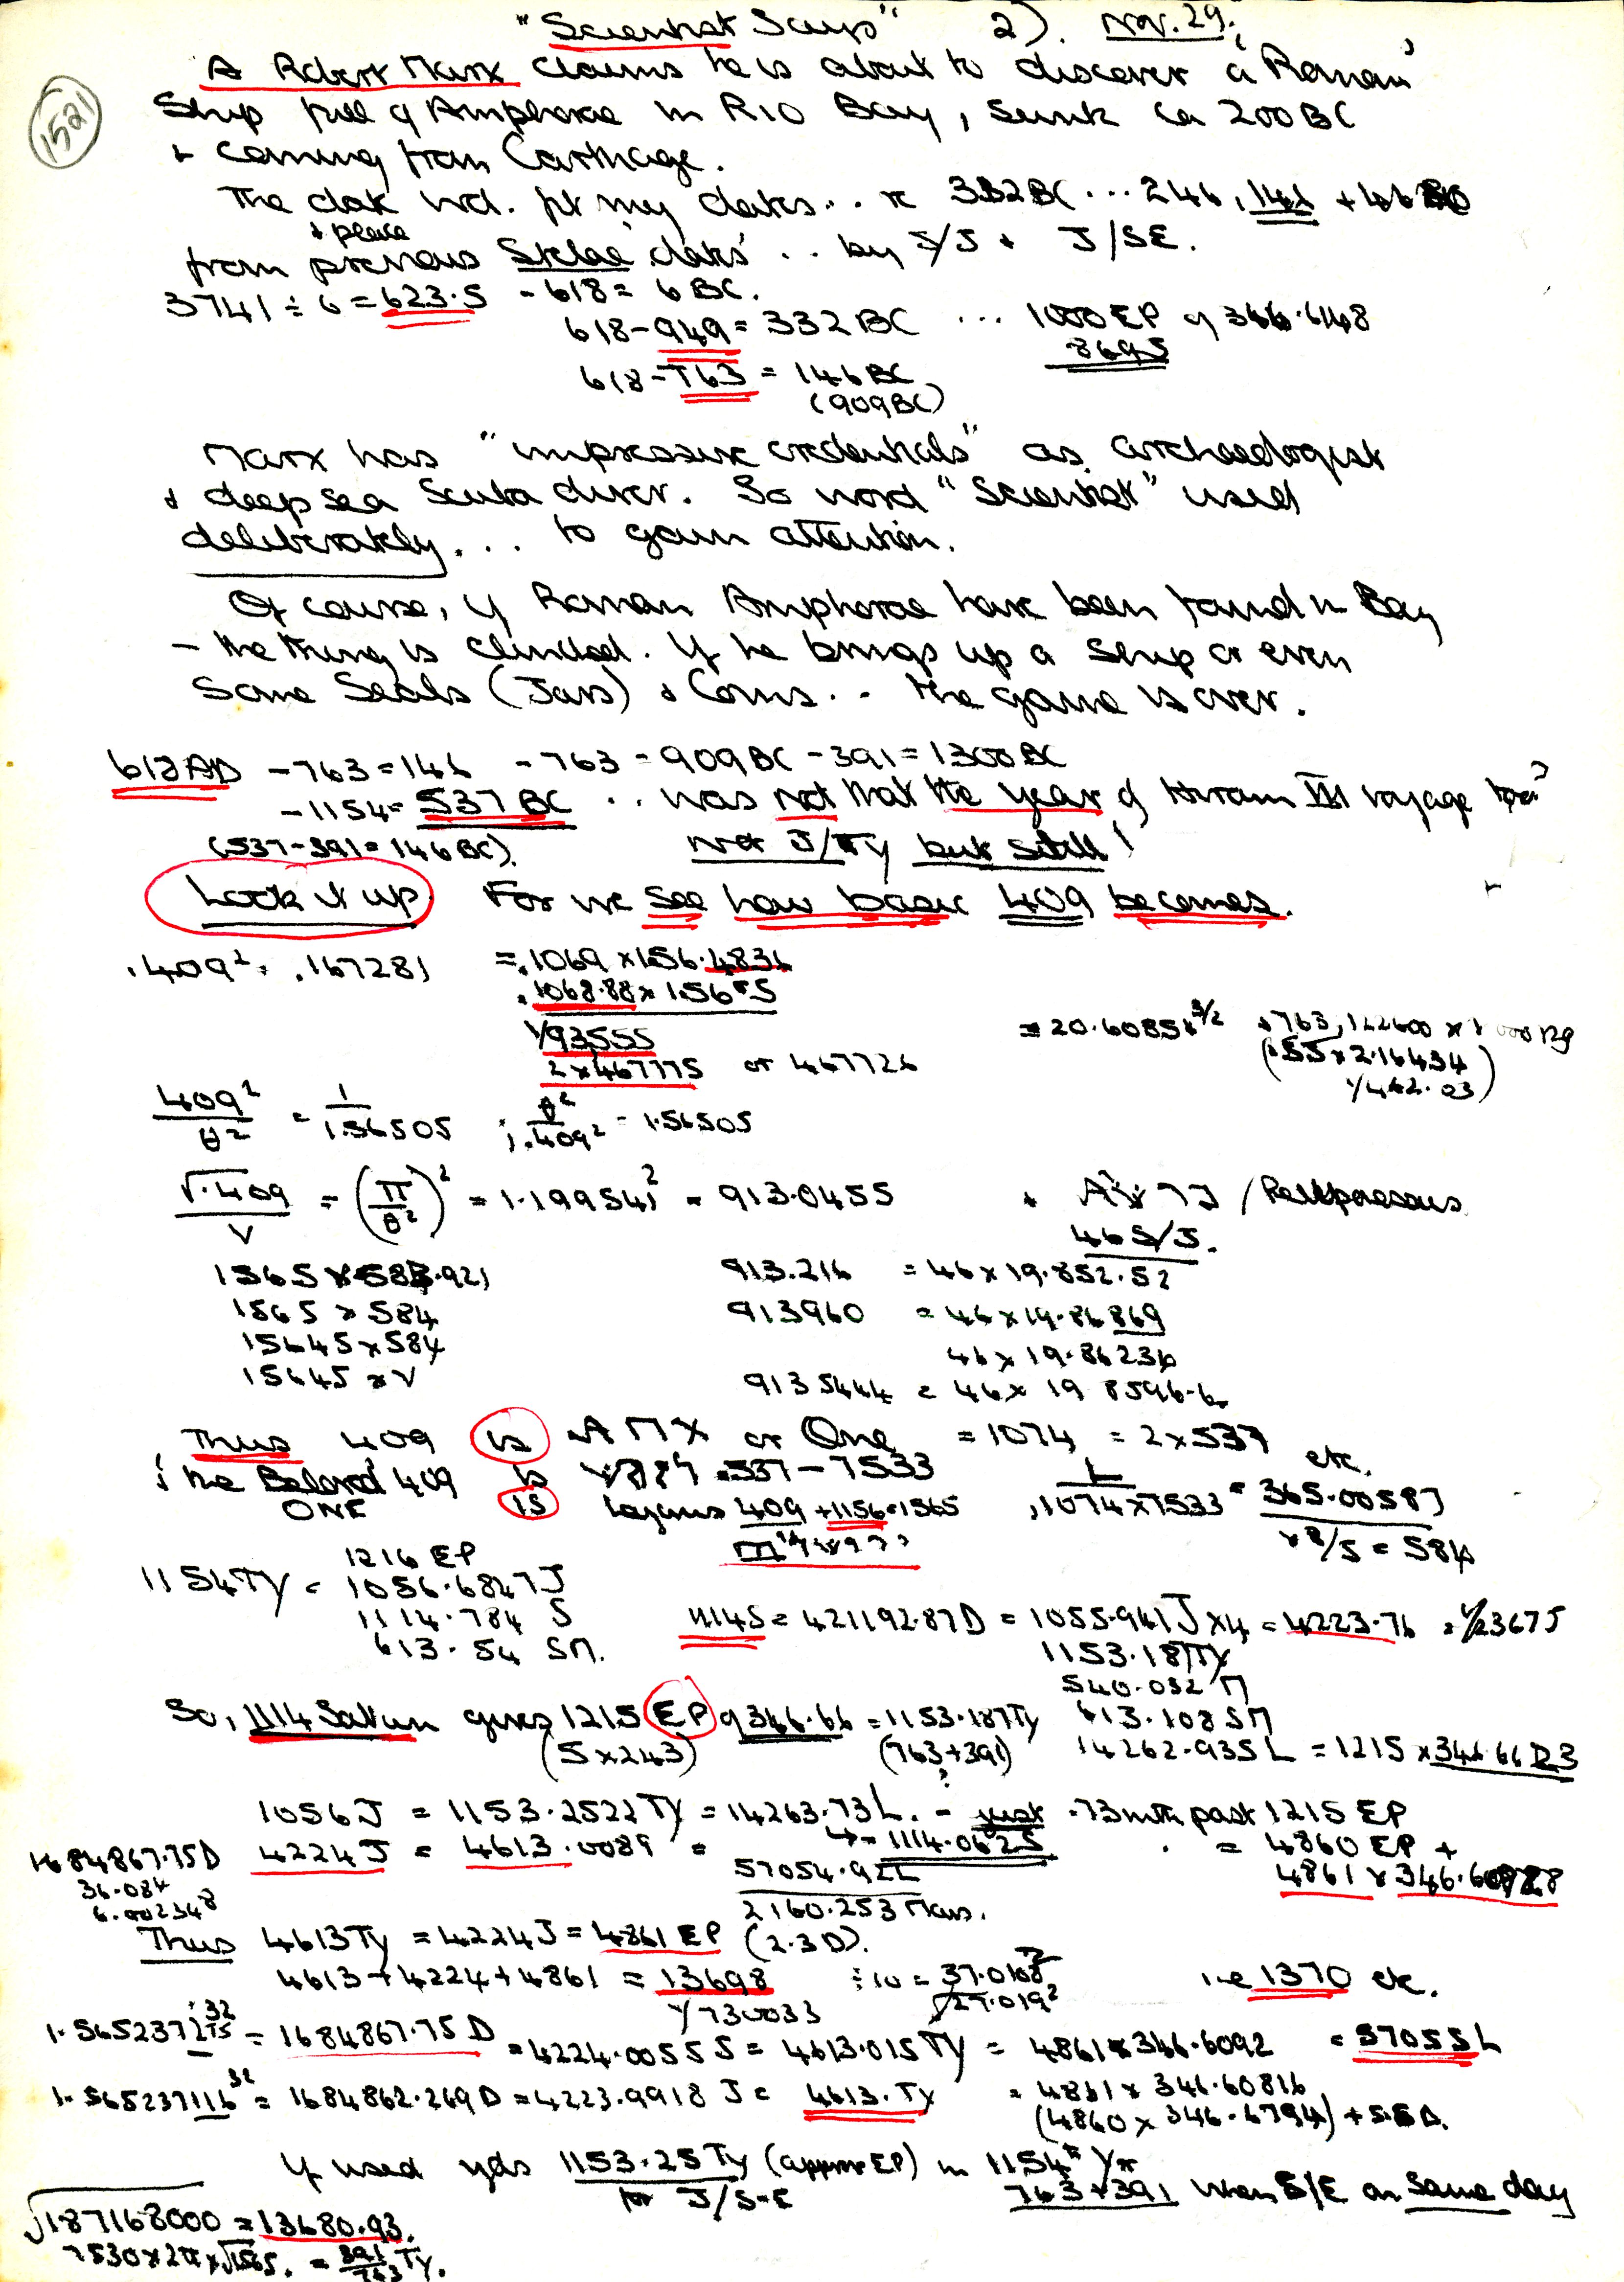 "Scientist Says" 2). Nov. 29.
1521
A Robert Marx claims he is about to discover a 'Roman'
Ship full of Amphorae in Rio Bay, sunk ca 200 BC
+ coming from Carthage.
The date wd. fit my dates... ie 332 BC ... 246, 146 + 46 BC
+ place
from previous Stelae 'dates' .. by S/J + J/SE.
3741 ÷ 6 = 623.5 - 618 = 6 BC.
618 - 949 = 332 BC ... 1000 EP of 346.6148
8695
618 - 763 = 146 BC
(909 BC)
Marx has "impressive credentials" as archaeologist
+ deep sea Scuba diver. So word "Scientist" used
deliberately... to gain attention.
Of course, if Roman Amphorae have been found in Bay
- the thing is clinched. If he brings up a Ship or even
Some Seals (Jars) + Coins.. the game is over.
618 AD - 763 = 146 - 763 = 909 BC - 391 = 1300 BC
- 1154 = 537 BC .. was not that the year of Hiram III voyage too?
(537 - 391 = 146 BC). not J/Ty but still!
Look it up For we see how basic 409 becomes.
.409² = .167281 = .1069 × 156.4836
.1068.88 × 1.565
1/93555
2 × 467775 or 467726
= 20.6085
(.55 × 2.16434)
1/462.03
409²/θ² = 1/1.56505 ; θ²/.409² = 1.56505
√.409/V = (π/θ²)² = 1.199541² = 913.0455
46 S/J.
1565 × 583.921
1565 × 584
15645 × 584
15645 × V
913.216 = 46 × 19.852.52
913960 = 46 × 19.86869
46 × 19.86236
9135444 = 46 × 19 8596.6
Thus 409 is or One = 1074 = 2 × 537
; the Beloved 409 is .537 - 7533 etc.
ONE IS 409 + 1156 = 1565 .1074 × 7533 = 365.00587
× 8/5 = 584
1216 EP
1154 TY = 1056.6847 J
1114.784 S
613.54 SM.
1114 S = 421192.87 D = 1055.941 J × 4 = 4223.76 = 1/23675
1153.187 Ty
540.032 M
So, 1114 Saturn gives 1215 EP of 346.66 = 1153.187 Ty 613.108 SM
(5 × 243) (763 + 391) 14262.935 L = 1215 × 346.66 D
1056 J = 1153.2522 Ty = 14263.73 L. - just .73 mth past 1215 EP
1114.0625
1684867.75 D 4224 J = 4613.0089 = = 4860 EP +
36.084 57054.92 L 4861 × 346.60928
6.002348 2160.253 Mars.
Thus 4613 Ty = 4224 J = 4861 EP (2.3 D).
4613 + 4224 + 4861 = 13698 ÷ 10 = 37.0108² i.e 1370 etc.
1/730033
= 1684867.75 D = 4224.0055 S = 4613.015 Ty = 4861 × 346.6092 = 57055 L
= 1684862.269 D = 4223.9918 J = 4613. Ty = 4861 × 346.60816
(4860 × 346.6794) + 5.5 D.
If used yds 1153.25 Ty (approx EP) in 1154th Yr
for J/S-E 763 + 391 when S/E on same day
√187168000 = 13680.93.
7530 × 2π × √.565. = 391/763 Ty.